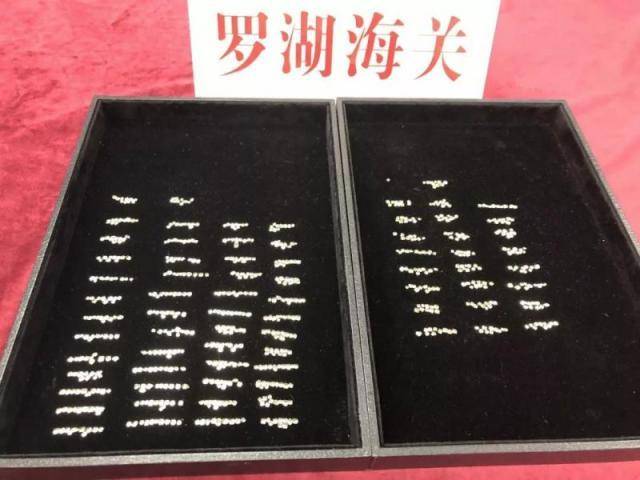 罗湖海关